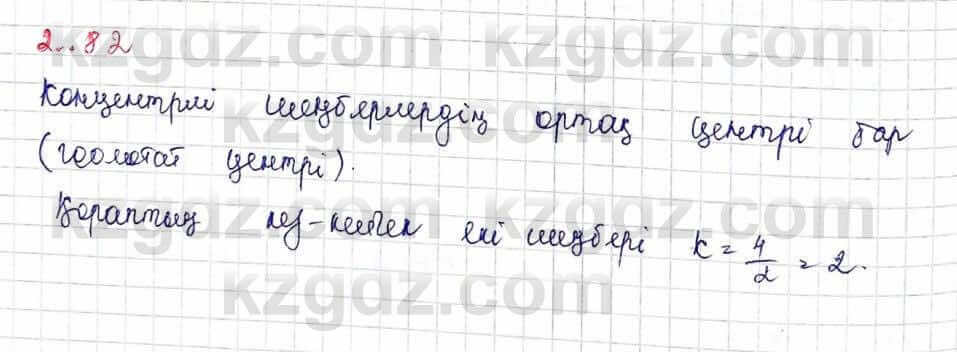 2.82
Концентрлі шеңберлердің ортақ центрі бар
(гомотат центрі).
кез-келген екі шеңбері k = 4/2 = 2.
kzgdz.com